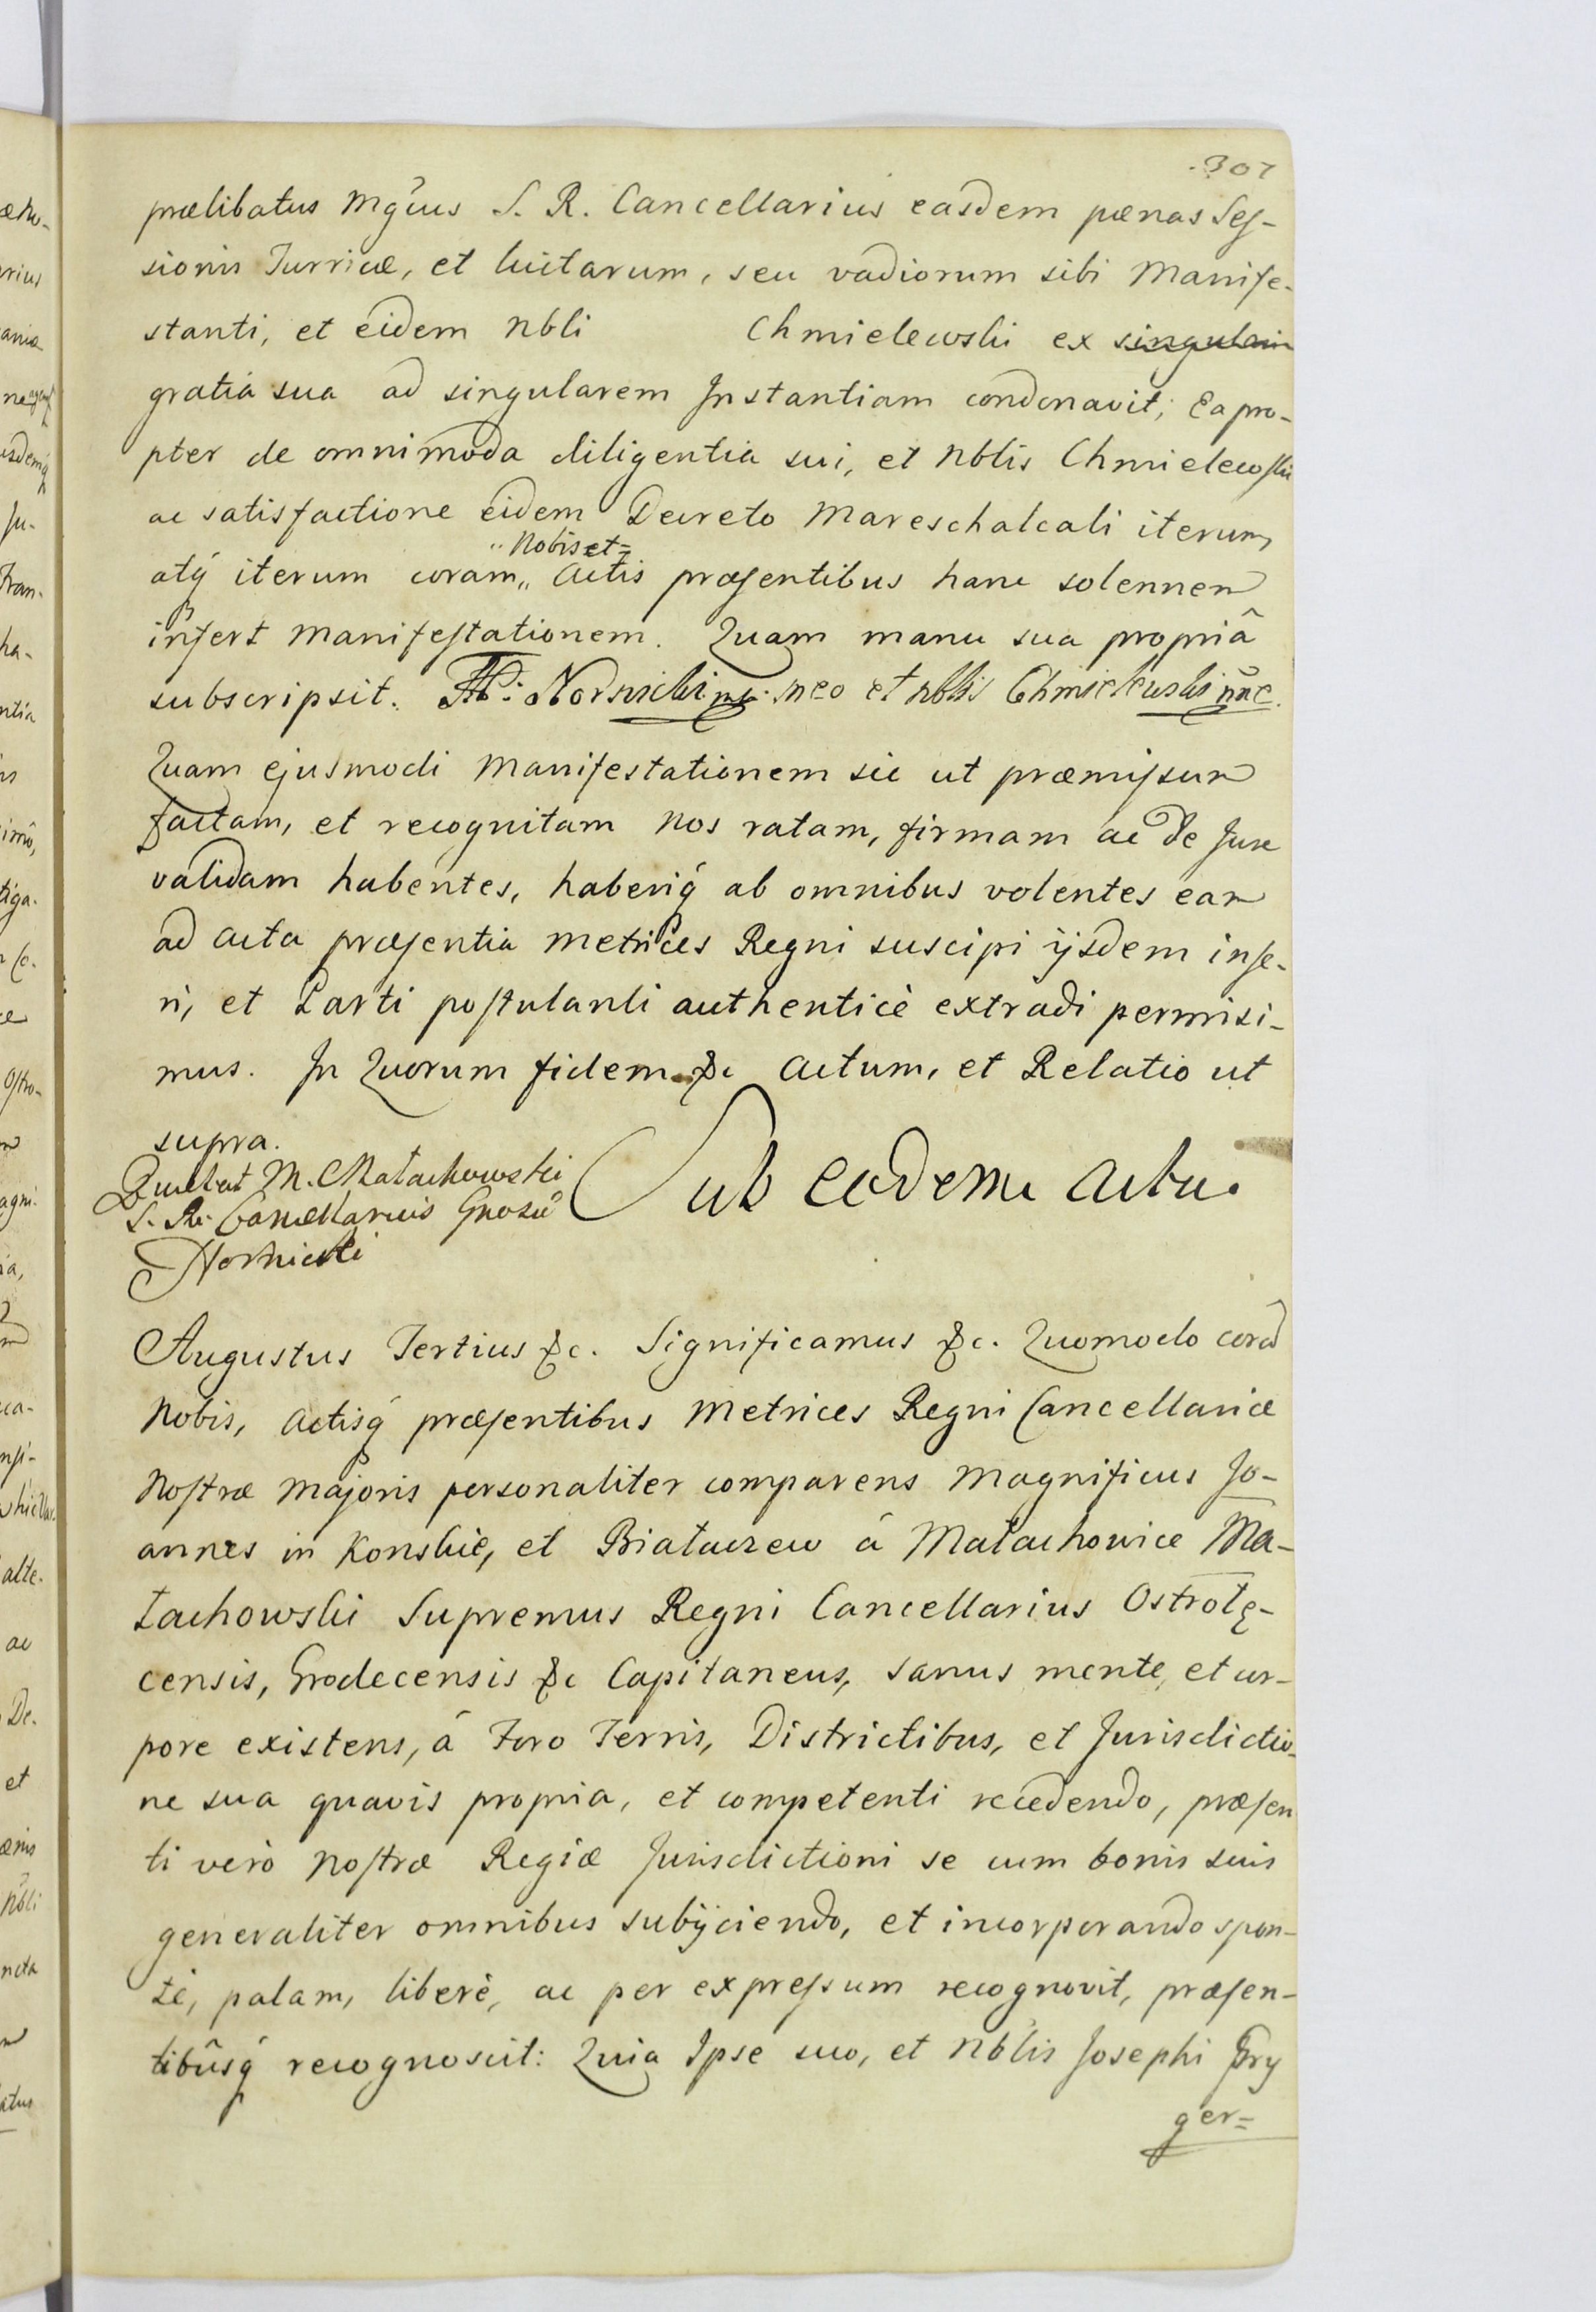 307
prælibatus Mgcus S. R. Cancellarius easdem pænas Ses-
sionis Turricæ, et luitarum, seu vadiorum sibi Manife-
stanti, et eidem Nbli Chmielewski ex singulari
gratia sua ad singularem Instantiam condonavit; Ea pro-
pter de omnimoda diligentia sui, et Nblis Chmielewski
ac satisfactione eidem Decreto Mareschalcali iterum,
„Nobis et=
atq́ iterum coram „ Actis præsentibus hanc solennem
infert Manifestationem. Quam manu sua propriâ
subscripsit. Nornicki meo et nblis Chmielewski nñe.
Quam ejusmodi Manifestationem sic ut præmissum
factam, et recognitam Nos ratam, firmam ac de Jure
validam habentes, haberiq́ ab omnibus volentes eam
ad Acta præsentia Metrices Regni suscipi ijsdem inse-
ri, et Parti postulanti authenticè extradi permisi-
mus. In Quorum fidem &c Actum, et Relatio ut
supra.
M. Małachowski
S. R. Cancellarius Gnosũ
Nornicki
Sub eodem Actu.
Augustus Tertius &c. Significamus &c. Quomodo corã
Nobis, Actisq́ præsentibus Metrices Regni Cancellariæ
Nostræ Majoris personaliter comparens Magnificus Jo-
annes in Konskie, et Białaczew á Małachowice Ma-
łachowski Supremus Regni Cancellarius Ostrołę-
censis, Grodecensis &c Capitaneus, sanus mente, et cor-
pore existens, á Foro Terris, Districtibus, et Jurisdictio-
ne sua quavis propria, et competenti recedendo, præsen
ti verò Nostræ Regiæ Jurisdictioni se cum bonis suis
generaliter omnibus subijciendo, et incorporando spon-
tè, palam, liberè, ac per expressum recognovit, præsen-
tibûsq́ recognoscit: Quia Ipse suo, et Nblis Josephi Gry
ger=